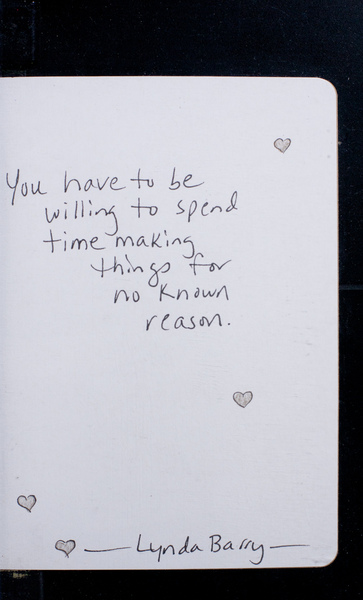 You have to be
willing to spend
time making
things for
no known
reason.
— Lynda Barry —